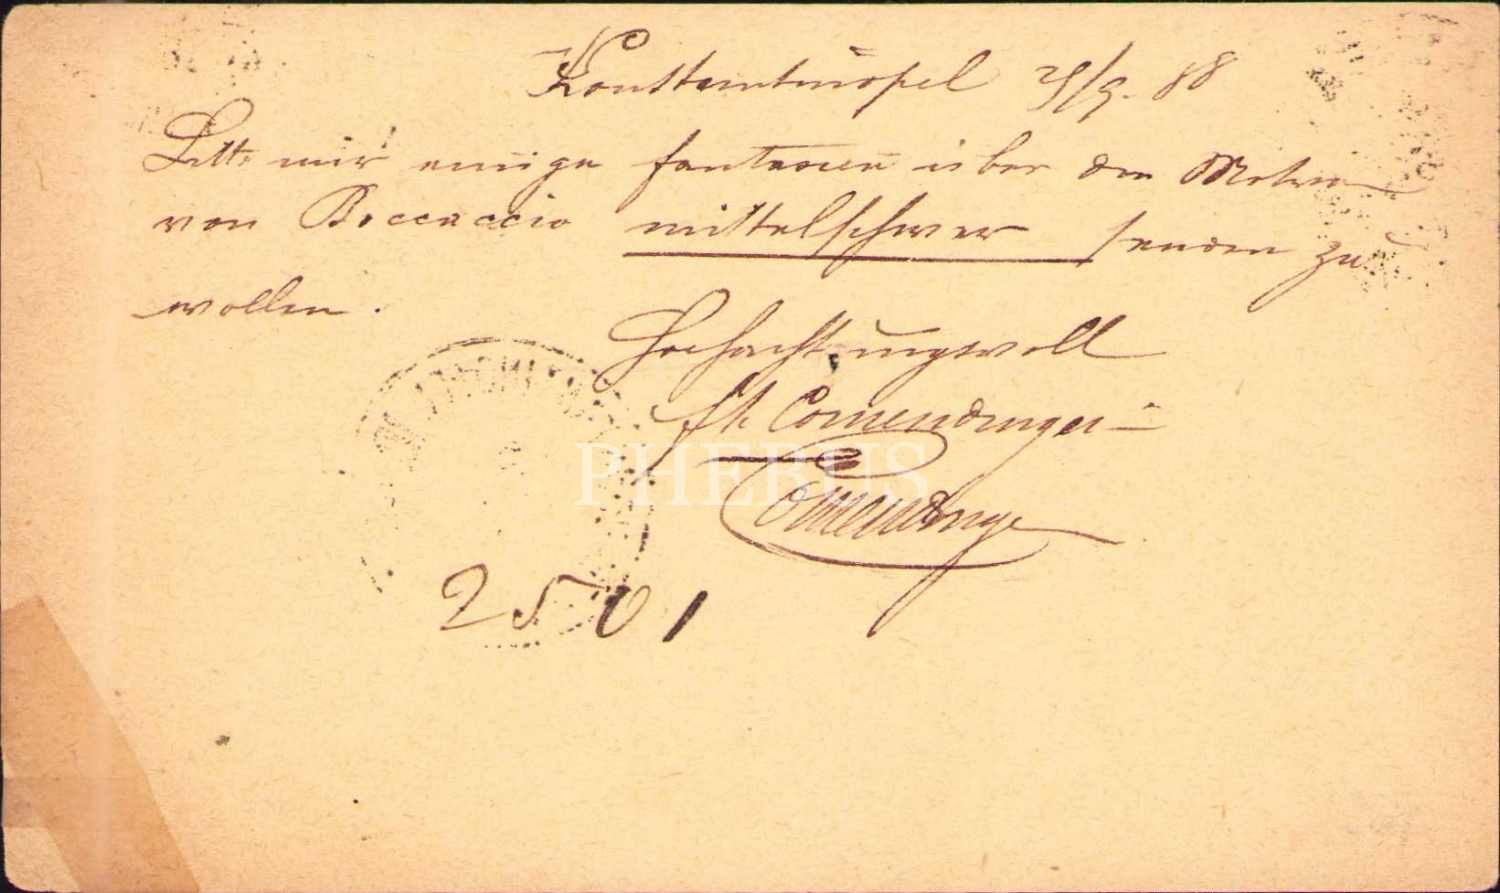 Konstantinopel 25/9. 88
Bitte mir einige fantasien über die Motive
von Boccaccio mittelschwer senden zu
wollen.
Hochachtungsvoll
Comendinger
PHEBUS
Comendinger
2501